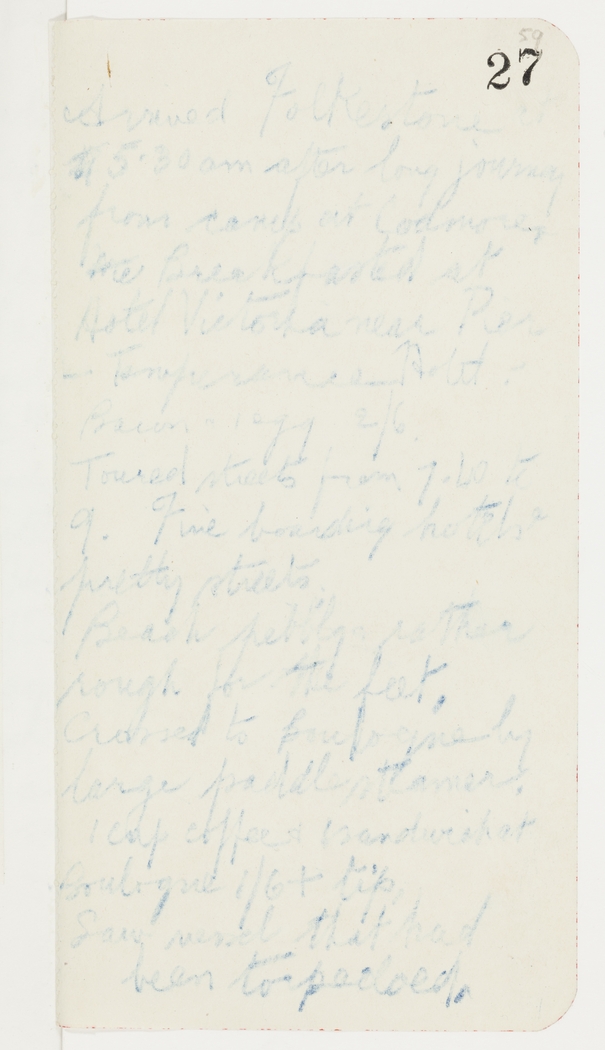 59
27
Arrived Folkestone at
5.30 am after long journey
from camp at Codmore,
We Breakfasted at
Hotel Victoria near Pier
- Temperance Hotel -
Bacon - 1 egg 2/6.
Toured streets from 7.40 to
9. Fine boarding hotels &
pretty streets.
Beach rather
rough for the feet.
Crossed to Boulogne by
large paddle steamer.
1 cup coffee & 1 sandwich at
Boulogne 1/6 + tip.
Saw vessel that had
been torpedoed.